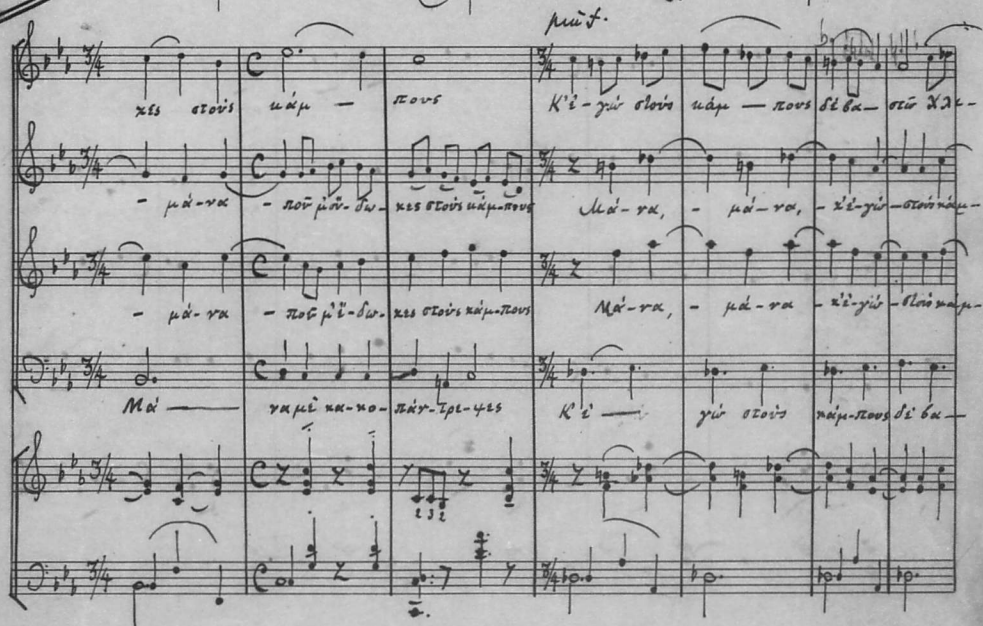 più f.
κες στοὺς κάμ — πους Κ' ἐ - γὼ στοὺς κάμ — πους δὲ βα — στῶ
- μά - να - ποῦ μὄυ - δω - κες στοὺς κάμ - πους Μά - να, - μά - να, - κ' ἐ - γὼ - στοὺς κάμ -
- μά - να - ποῦ μ' ἔ - δω - κες στοὺς κάμ - πους Μά - να, - μά - να - κ' ἐ - γὼ - στοὺς κάμ -
Μά — να μὲ κα - κο - πάν - τρε - ψες Κ' ἐ — γὼ στοὺς κάμ - πους δὲ βα —
2 3 2